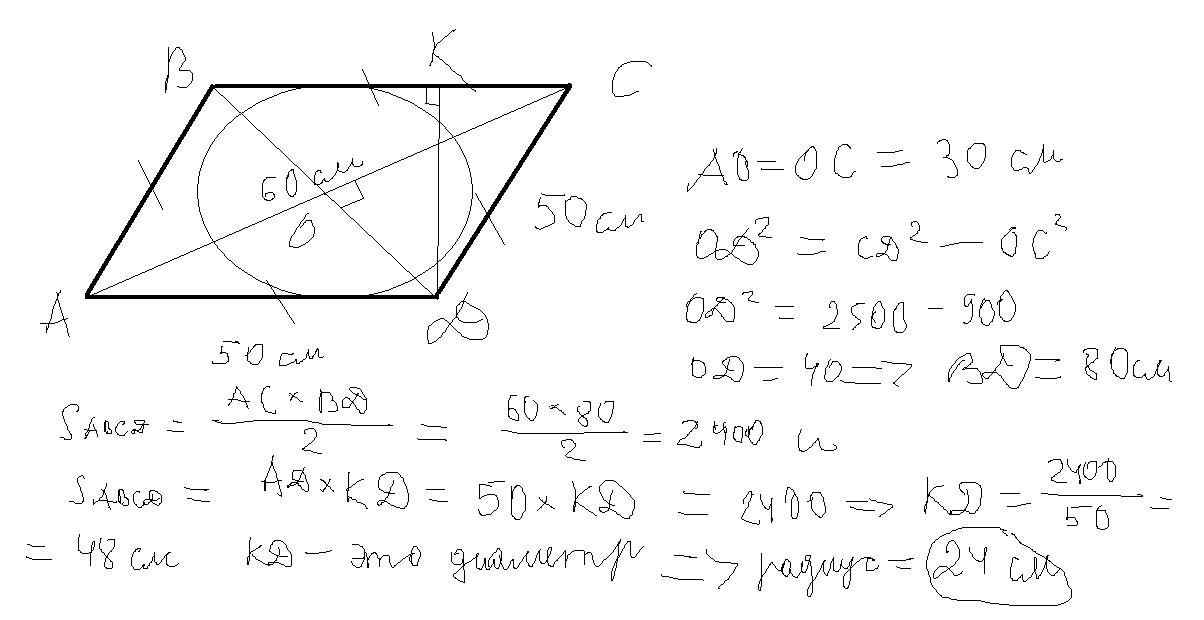 B K C
60 см
O
50 см
A D
50 см
AO = OC = 30 см
OD² = CD² - OC²
OD² = 2500 - 900
OD = 40 => BD = 80 см
S ABCD = AC × BD / 2 = 60 × 80 / 2 = 2400 и
S ABCD = AD × KD = 50 × KD = 2400 => KD = 2400 / 50 =
= 48 см KD - это диаметр => радиус = 24 см